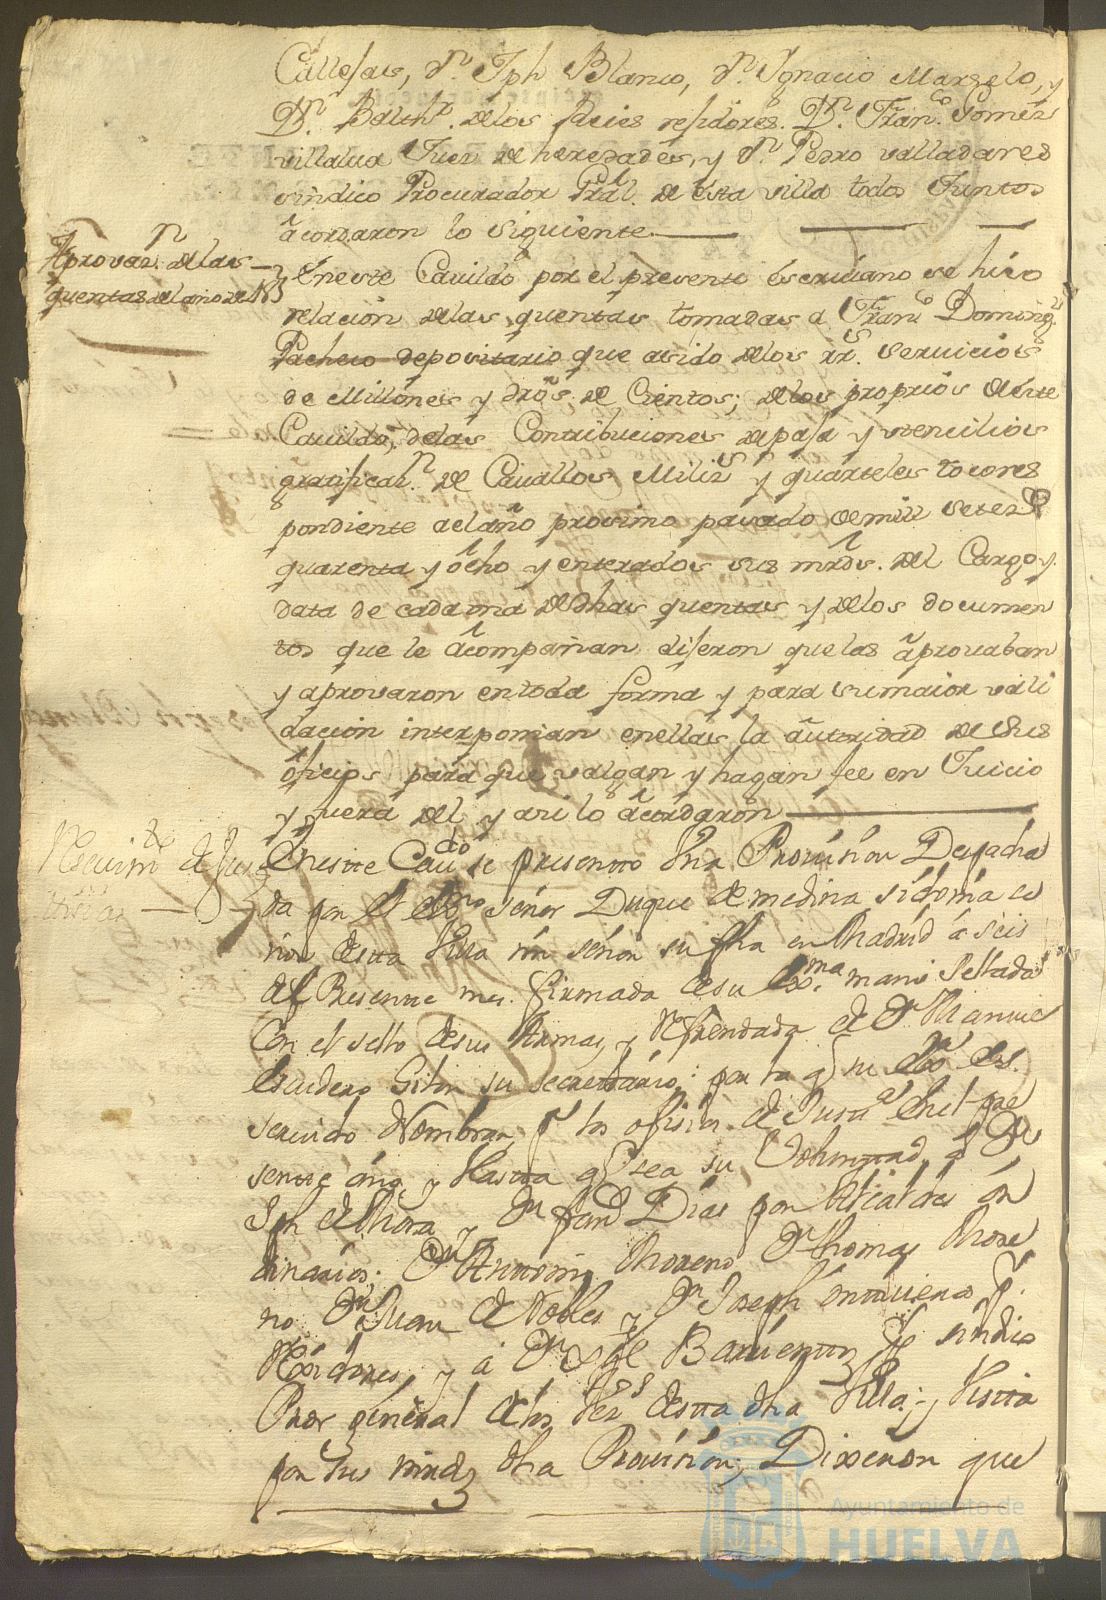 Callejas, Dn. Jph Blanco, Dn. Ignacio Marzelo, y
Dn. Balthr. de los Reies rejidores. Dn. Franco. Gomez
villalua Juez de heredades, y Dn. Pedro valladares
sindico Procurador Gral. de esta villa todos Juntos
acordaron lo siguiente
Aprovazn. de las
quentas del año de 48
En este Cavildo por el presente escriuano se hizo
relacion de las quentas tomadas a Franco Doming.
Pacheco depositario que asido de los rs. seruicios
de Millones y dros. de Cientos; de los proprios de este
Cauildo, de las Contribuciones de paja y utencilios
gratificazn. de Cauallos Milizs y quarteles to cores
pondiente del año proximo pasado de mill setezs
quarenta y ocho y enterados sus mrds. del Cargo y
data de cada una de dhas quentas y de los documen
tos que le acompañan dijeron que las aprouaban
y aprovaron en toda forma y para su maior vali
dacion interponian en ellas la autoridad de sus
oficios para que valgan y hagan fee en Juicio
y fuera del y asi lo acordaron
Reciuimto de Jus
ticias
En este Caudo se presento una Prouision Despacha
da por el Exmo señor Duque de medina sidonia se
ñor desta Villa mi señor su fha en Madrid á seis
del Presente mes. firmada de su Exma. mano Sellada
Con el sello de sus Armas, y Refrendada de Dn Manuel
Escudero Gilon su secretario: por la q su Exa es.
seruido Nombrar pa los ofisios de Justa en el pre
sente año, y Hasta q sea su Voluntad, a Dn
Jph de Mora, y Dn fando Dias por Alcaldes or
dinarios; Dn Antonio Moreno Dn thomas More
no Dn Juan de Nobles y Dn Joseph pr.
Rexidores, y á Dn Barrientos pr sindico
Pror general de los Vezs desta dha Villa; y Vista
por sus mrds dha Prouision, Dixeron que
Ayuntamiento de
HUELVA